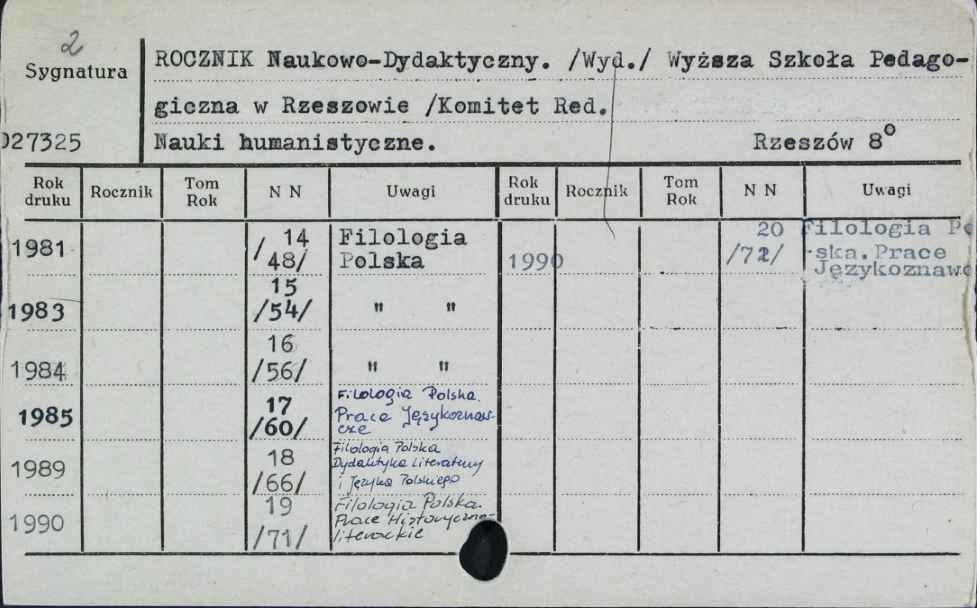 2
Sygnatura
027325
ROCZNIK Naukowo-Dydaktyczny. /Wyd./ Wyższa Szkoła Pedago-
giczna w Rzeszowie /Komitet Red.
Nauki humanistyczne. Rzeszów 8°
Rok druku Rocznik Tom Rok N N Uwagi Rok druku Rocznik Tom Rok N N Uwagi
1981 14 /48/ Filologia Polska
1983 15 /54/ " "
1984 16 /56/ " "
1985 17 /60/ Filologia Polska. Prace Językoznaw-cze
1989 18 /66/ Filologia Polska Dydaktyka Literatury i Języka Polskiego
1990 19 /71/ Filologia Polska. Prace Historyczno-literackie
1990 20 /72/ Filologia Po
ska. Prace
Językoznawc